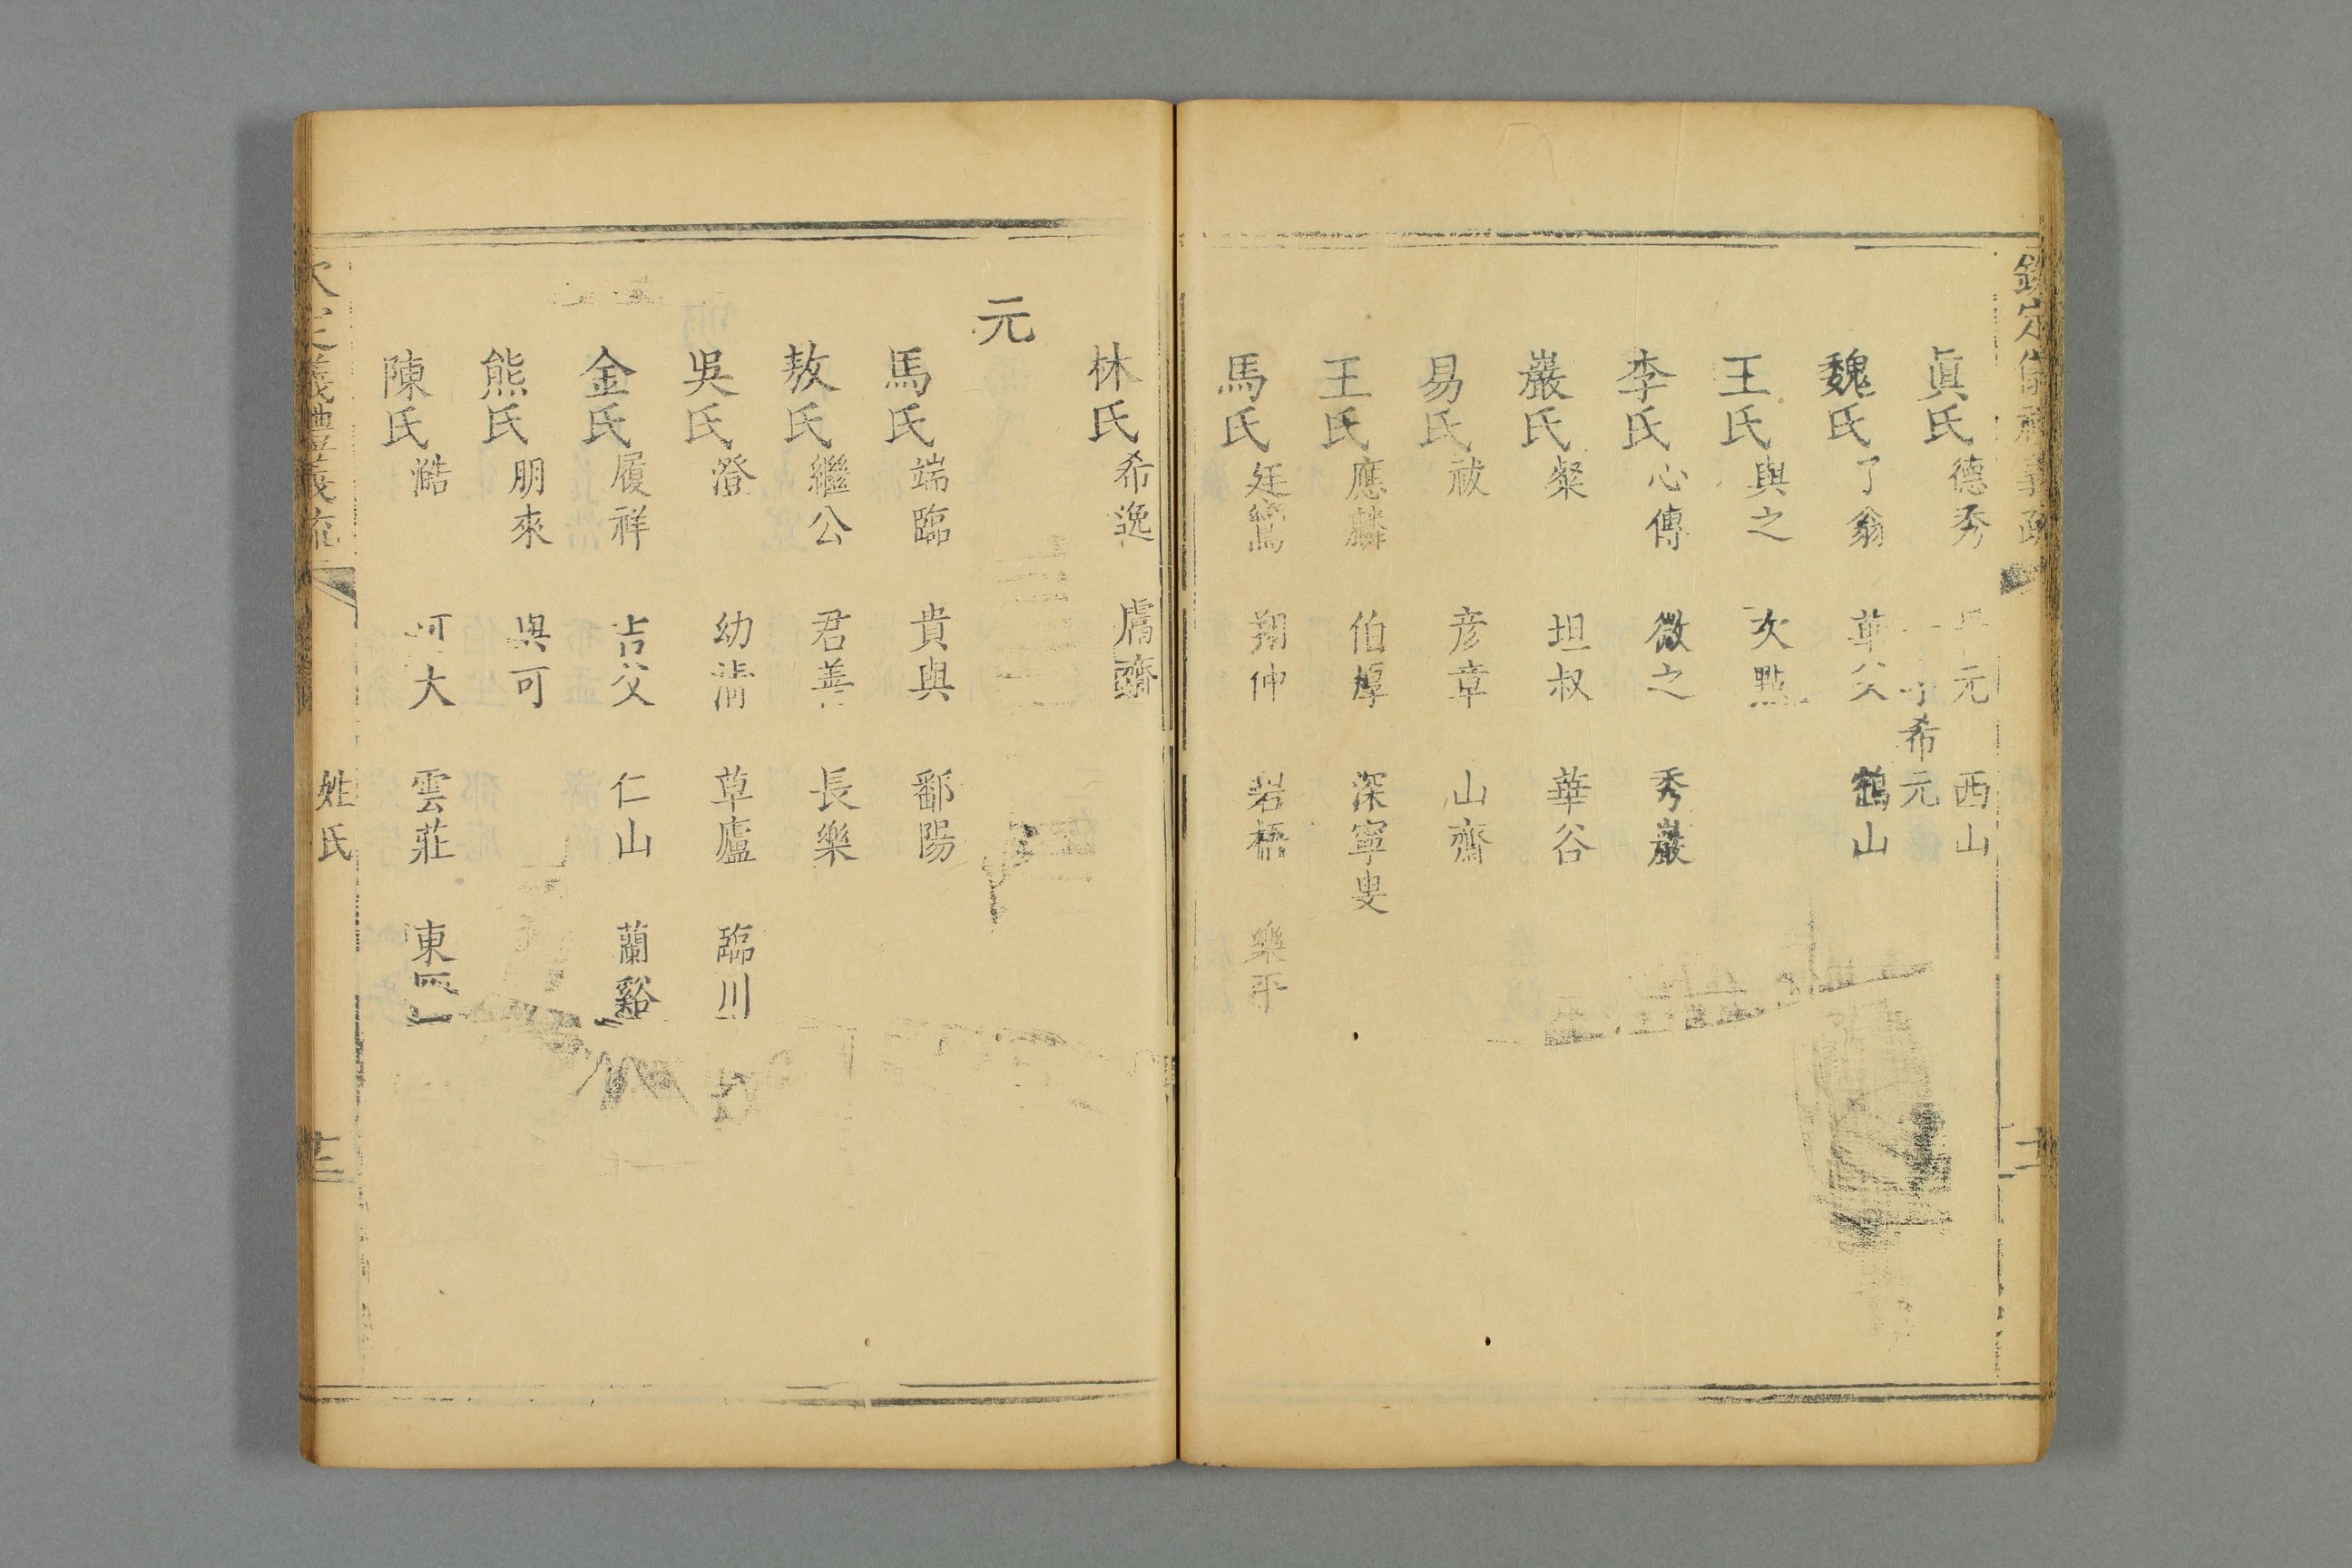 欽定儀禮義疏
眞氏德秀 元 西山
希元
魏氏了翁 華父 鶴山
王氏與之 次點
李氏心傳 微之 秀巖
巖氏粲 坦叔 華谷
易氏祓 彦章 山齋
王氏應麟 伯厚 深寧叟
馬氏廷鸞 翔仲 碧梧 樂平
林氏希逸 鬳齋
元
馬氏端臨 貴與 鄱陽
敖氏繼公 君善 長樂
吳氏澄 幼淸 草廬 臨川
金氏履祥 吉父 仁山 蘭谿
熊氏朋來 與可
陳氏澔 可大 雲莊 東匯
義禮義疏 姓氏